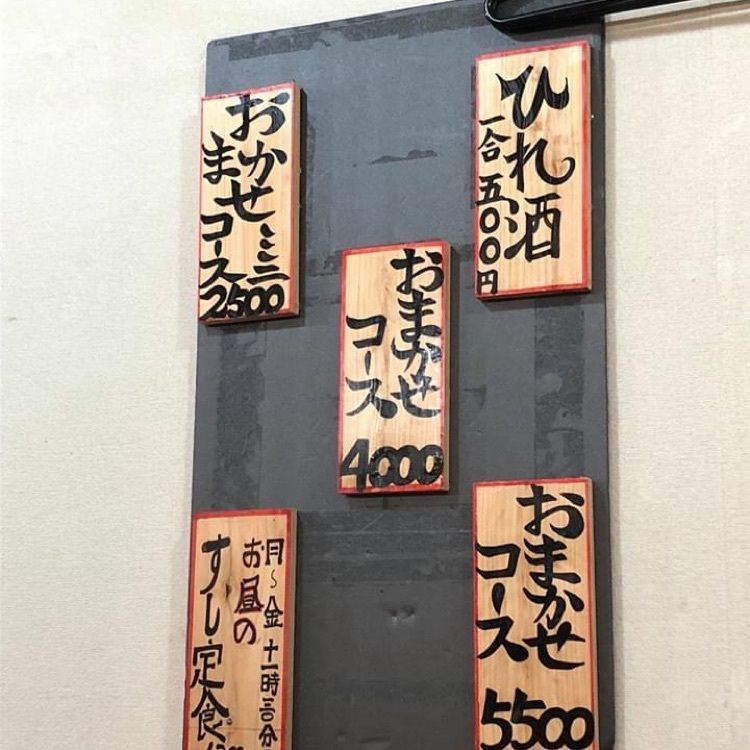 ひれ酒
一合五〇〇円
おまかせミニ
コース
2500
おまかせ
コース
4000
おまかせ
コース
5500
月〜金 十一時三〇分
お昼の
すし定食